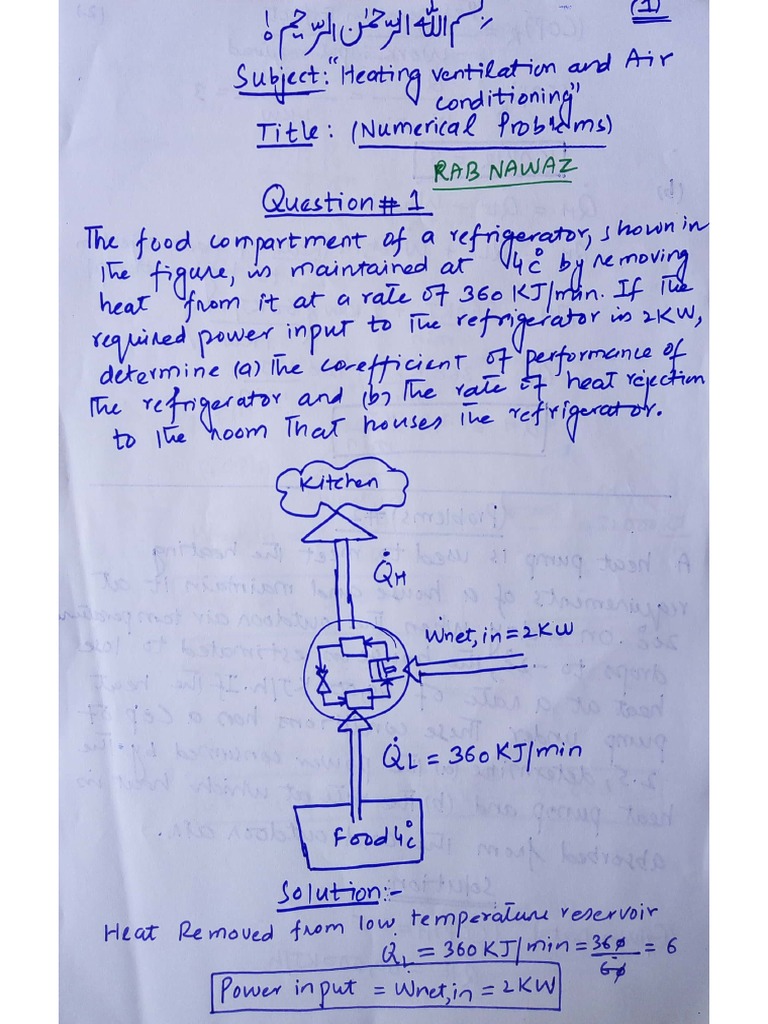 (1)
بسم الله الرحمن الرحيم ه
Subject: "Heating ventilation and Air
conditioning"
Title: (Numerical Problems)
RAB NAWAZ
Question # 1
The food compartment of a refrigerator, shown in
the figure, is maintained at 4°C by removing
heat from it at a rate of 360 KJ/min. If the
required power input to the refrigerator is 2KW,
determine (a) The co-efficient of performance of
the refrigerator and (b) The rate of heat rejection
to the room that houses the refrigerator.
Kitchen
Q̇H
Wnet,in = 2KW
Q̇L = 360 KJ/min
Food 4°C
Solution:-
Heat Removed from low temperature reservoir
QL = 360 KJ/min = 360/60 = 6
Power input = Wnet,in = 2KW